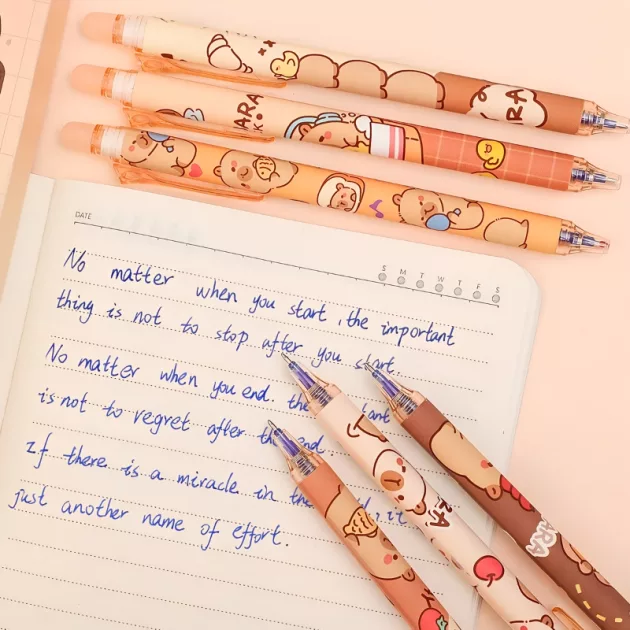 RA
ARA
DATE
S M T W T F S
No matter when you start, the important
thing is not to stop after you start.
No matter when you end. the
is not to regret after the end
If there is a miracle in the it
just another name of effort.
RA
ARA